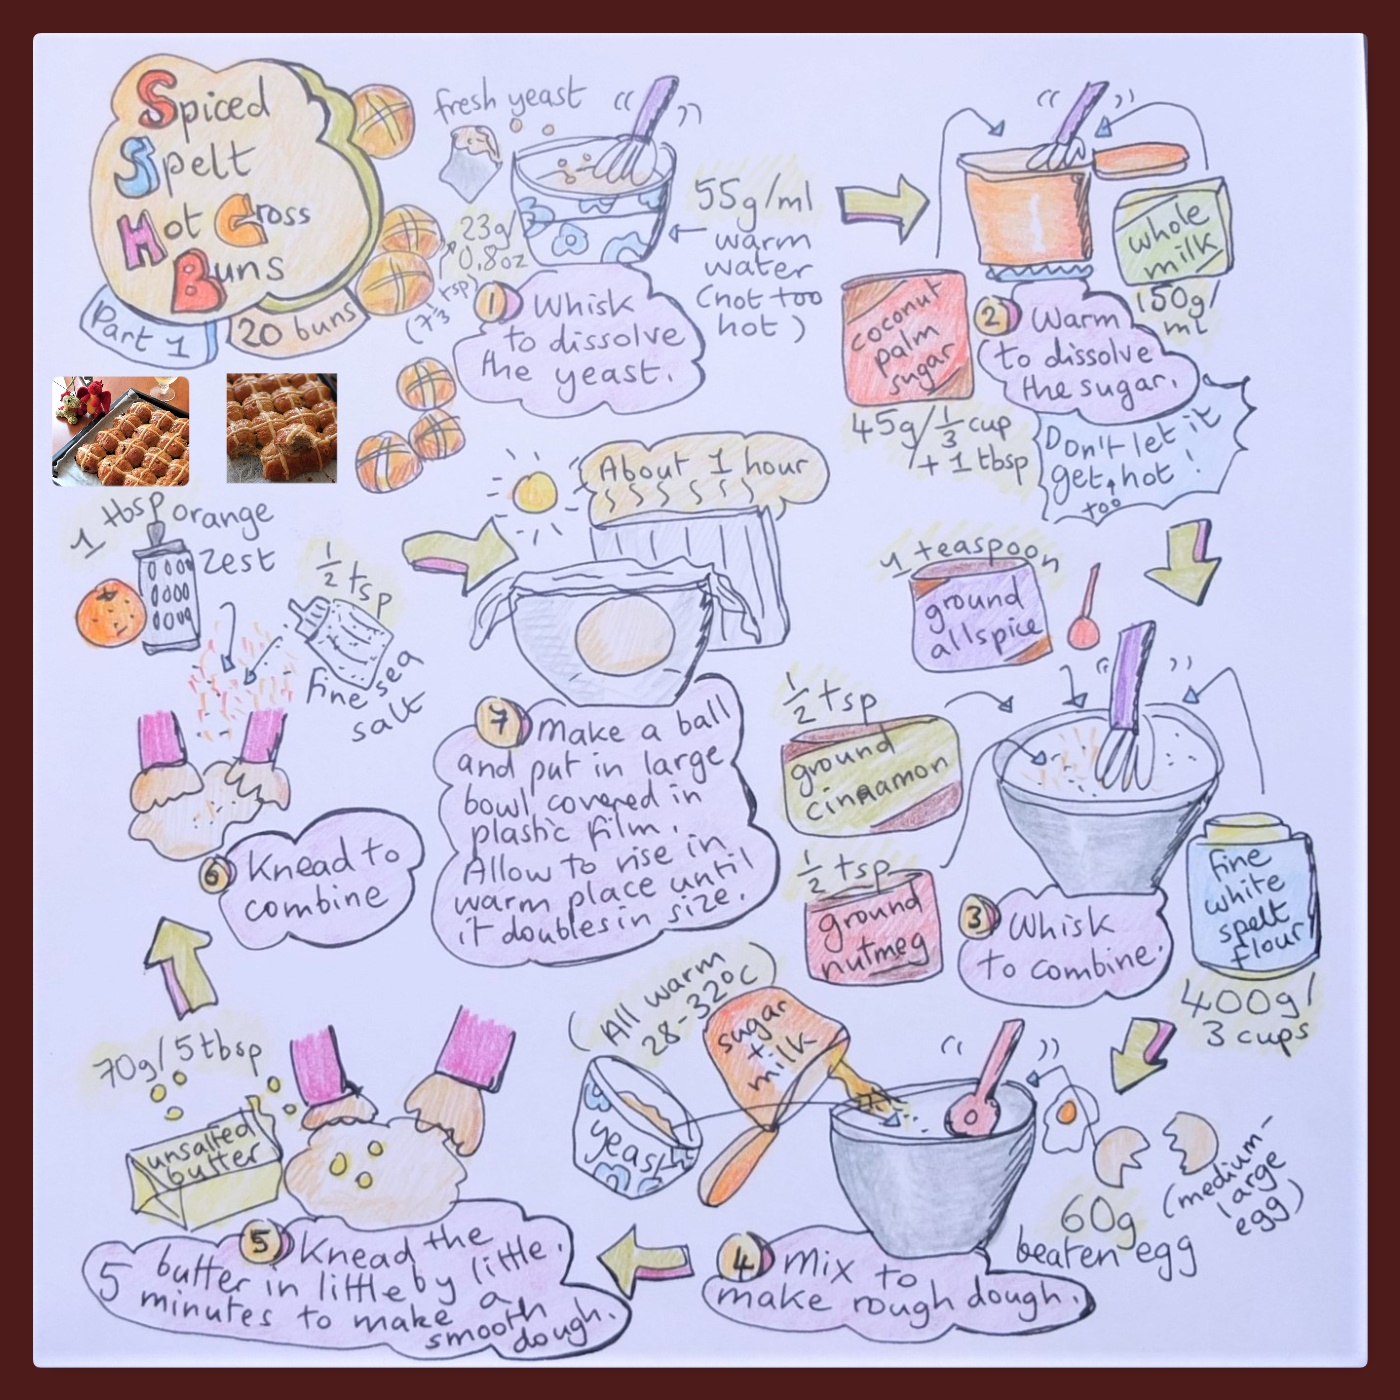 Spiced
Spelt
Hot Cross
Buns
Part 1
20 buns
fresh yeast
23g/
0,8oz
(7⅓ tsp)
55g/ml
warm
water
(not too
hot)
1 Whisk
to dissolve
the yeast.
coconut
palm
sugar
45g/⅓ cup
+ 1 tbsp
whole
milk
150g/
ml
2 Warm
to dissolve
the sugar.
Don't let it
get hot!
too
1 teaspoon
ground
allspice
½ tsp
ground
cinnamon
½ tsp
ground
nutmeg
fine
white
spelt
flour
400g/
3 cups
3 Whisk
to combine.
(All warm
28-32°C)
yeast
sugar
+
milk
60g
beaten egg
(medium-
large
egg)
4 Mix to
make rough dough.
70g/5tbsp
unsalted
butter
5 Knead the
butter in little by little.
5 minutes to make a
smooth
dough.
1 tbsp orange
zest
½ tsp
fine sea
salt
6 Knead to
combine
About 1 hour
7 Make a ball
and put in large
bowl covered in
plastic film.
Allow to rise in
warm place until
it doubles in size.